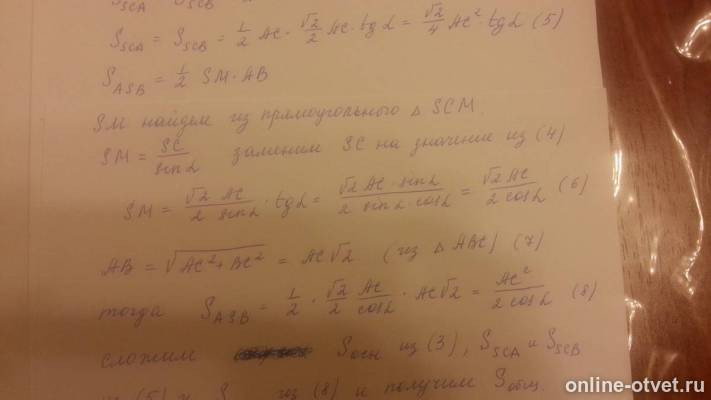 S_SCA = S_SCB = 1/2 AC · √2/2 AC · tg α = √2/4 AC² · tg α (5)
S_ASB = 1/2 SM · AB
SM найдем из прямоугольного △ SCM.
SM = SC/sin α заменим SC на значение из (4)
SM = √2 AC/2 sin α · tg α = √2 AC · sin α/2 sin α · cos α = √2 AC/2 cos α (6)
AB = √AC² + BC² = AC√2 (из △ ABC) (7)
тогда S_ASB = 1/2 · √2/2 AC/cos α · AC√2 = AC²/2 cos α (8)
сложим S_осн из (3), S_SCA и S_SCB
из (5) и S из (8) и получим S_общ.
online-otvet.ru